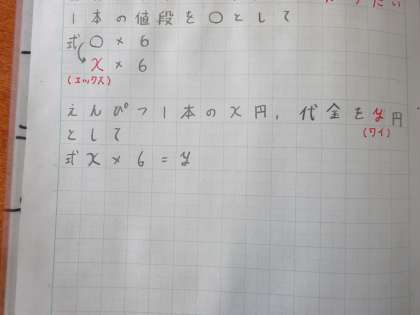 1本の値段を○として
式 ○×6
x×6
(エックス)
えんぴつ1本のx円、代金をy円
(ワイ)
として
式 x×6=y